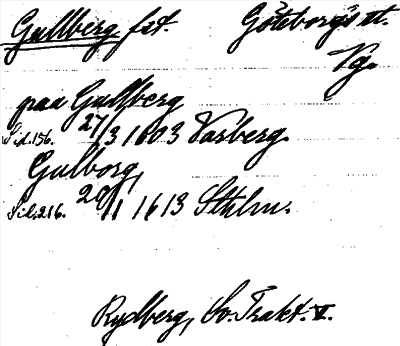 Gullberg fäst. Göteborgs st.
Vg.
paa Gullberg
Sid.156. 27/3 1603 Varberg.
Gulborg,
Sid.216. 20/11 1613 Sthlm.
Rydberg, Sv. Trakt. V.